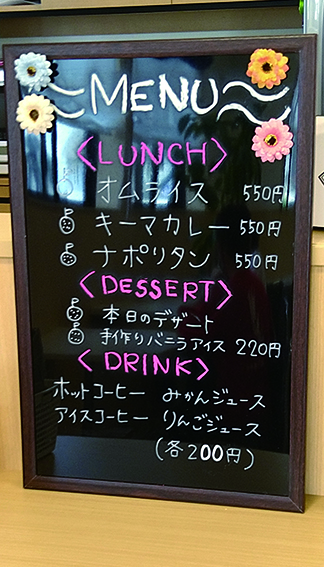 MENU
<LUNCH>
オムライス 550円
キーマカレー 550円
ナポリタン 550円
<DESSERT>
本日のデザート
手作りバニラアイス 220円
<DRINK>
ホットコーヒー みかんジュース
アイスコーヒー りんごジュース
(各200円)